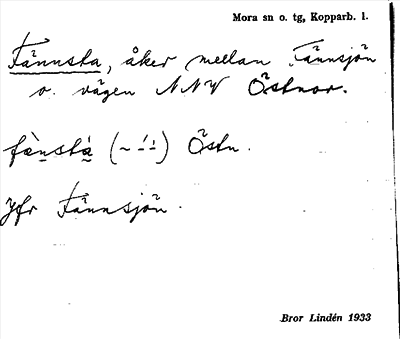 Mora sn o. tg, Kopparb. l.
Fännsta, åker mellan Fännsjön
o. vägen NNV Östnor.
fä̀nstá (~ -́ -́) Östn.
Jfr Fännsjön.
Bror Lindén 1933